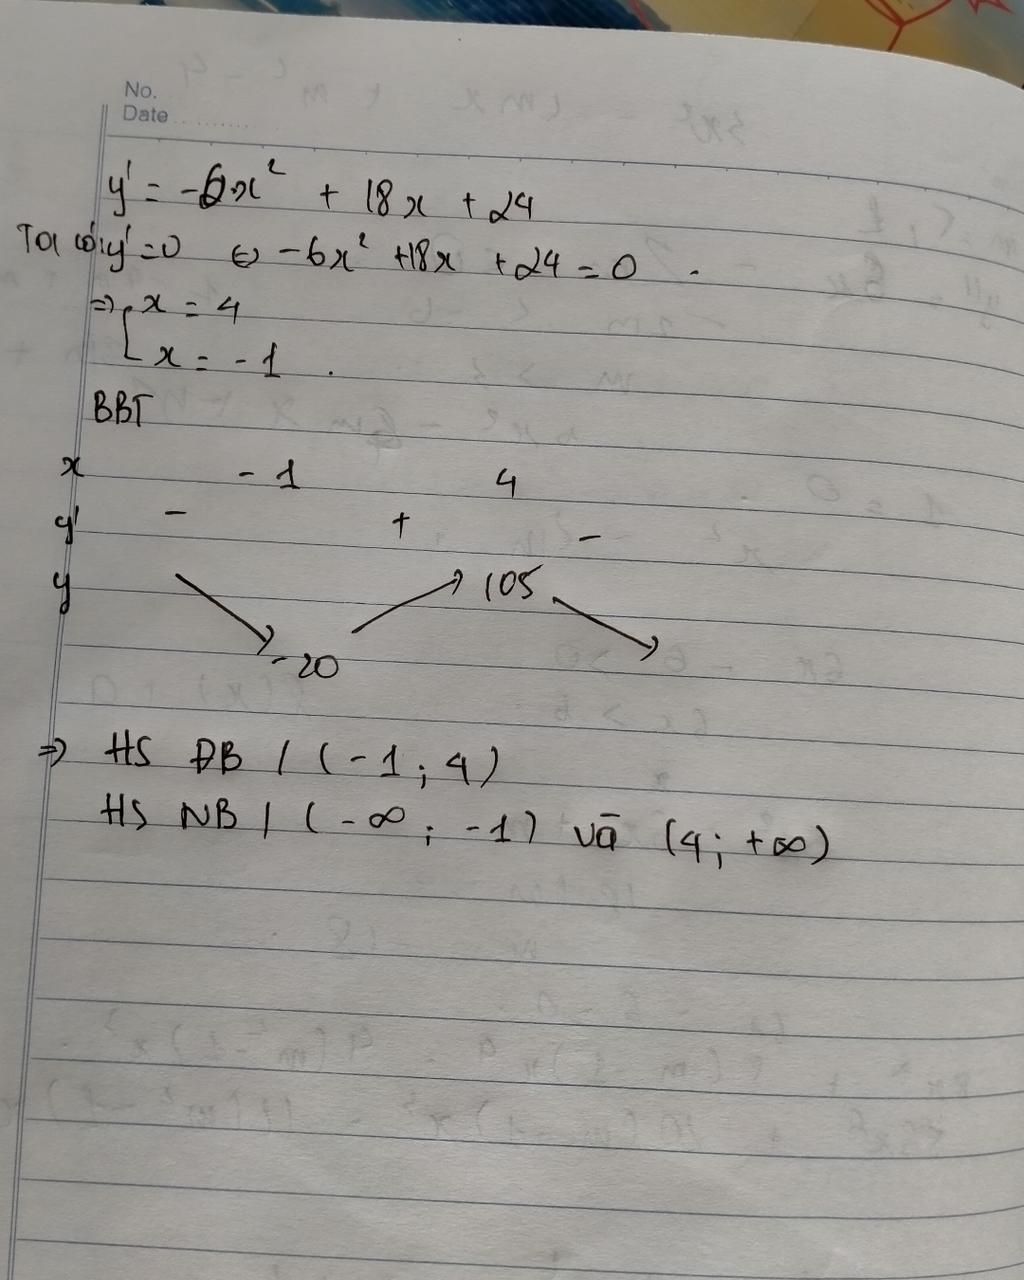 No.
Date
y' = -6x² + 18x + 24
Ta có: y' = 0 ⇔ -6x² + 18x + 24 = 0 .
=> [ x = 4
x = -1 .
BBT
x -1 4
y' - + -
y 105
-20
=> HS ĐB / (-1 ; 4)
HS NB / (-∞ ; -1) và (4 ; +∞)